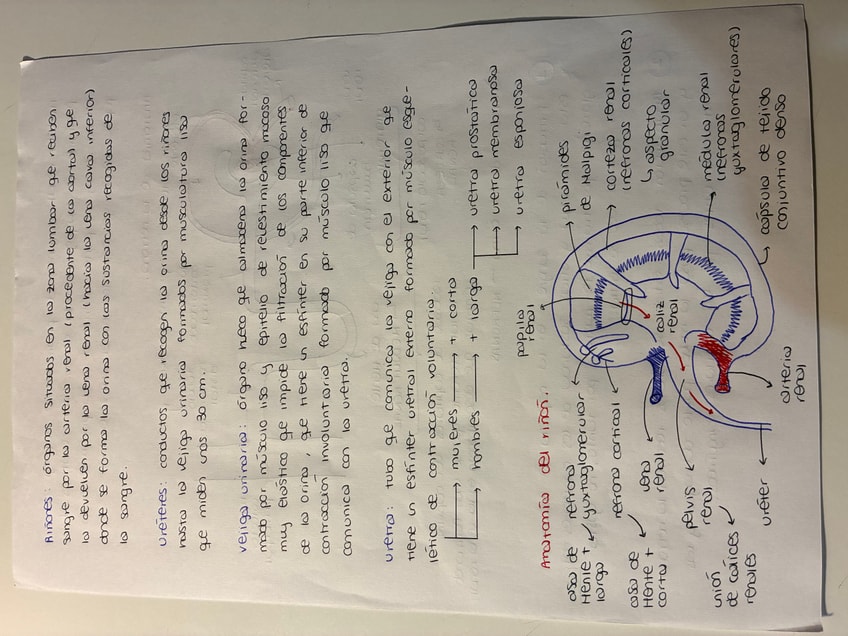 Riñones: órganos situados en la zona lumbar que reciben
sangre por la arteria renal (procedente de la aorta) y que
la devuelven por la vena renal (hacia la vena cava inferior)
donde se forma la orina con las sustancias recogidas de
la sangre.
Uréteres: conductos que recogen la orina desde los riñones
hasta la vejiga urinaria formados por musculatura lisa
que miden unos 30 cm.
Vejiga urinaria: órgano hueco que almacena la orina for-
mado por músculo liso y epitelio de revestimiento mucoso
muy elástico que impide la filtración de los componentes
de la orina, que tiene un esfínter en su parte inferior de
contracción involuntaria formado por músculo liso que
comunica con la uretra.
Uretra: tubo que comunica la vejiga con el exterior que
tiene un esfínter uretral externo formado por músculo esque-
lético de contracción voluntaria.
mujeres → + corta
hombres → + larga → uretra prostática
→ uretra membranosa
→ uretra esponjosa
Anatomía del riñón.
papila
renal
pirámides
de Malpigi
corteza renal
(nefronas corticales)
↳ aspecto
granular
médula renal
(nefronas
yuxtaglomerulares)
cápsula de tejido
conjuntivo denso
asa de
Henle +
larga
nefrona
yuxtaglomerular
nefrona cortical
asa de
Henle +
corta
vena
renal
pelvis
renal
unión
de cálices
renales
uréter
cáliz
renal
arteria
renal